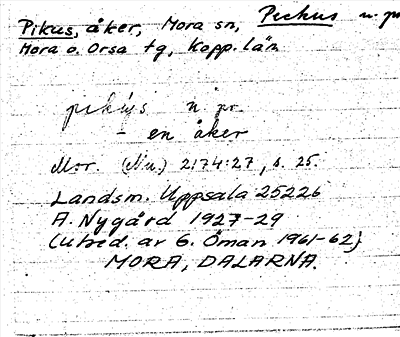 Pikus, åker, Mora sn, Pickus n. pr
Mora o. Orsa tg, Kopp. län
pikus n. pr.
- en åker
Mor. (Nu.) 2:74:27, s. 25.
Landsm. Uppsala 25226
A. Nygård 1927-29
(Utred. av G. Öman 1961-62)
MORA, DALARNA.